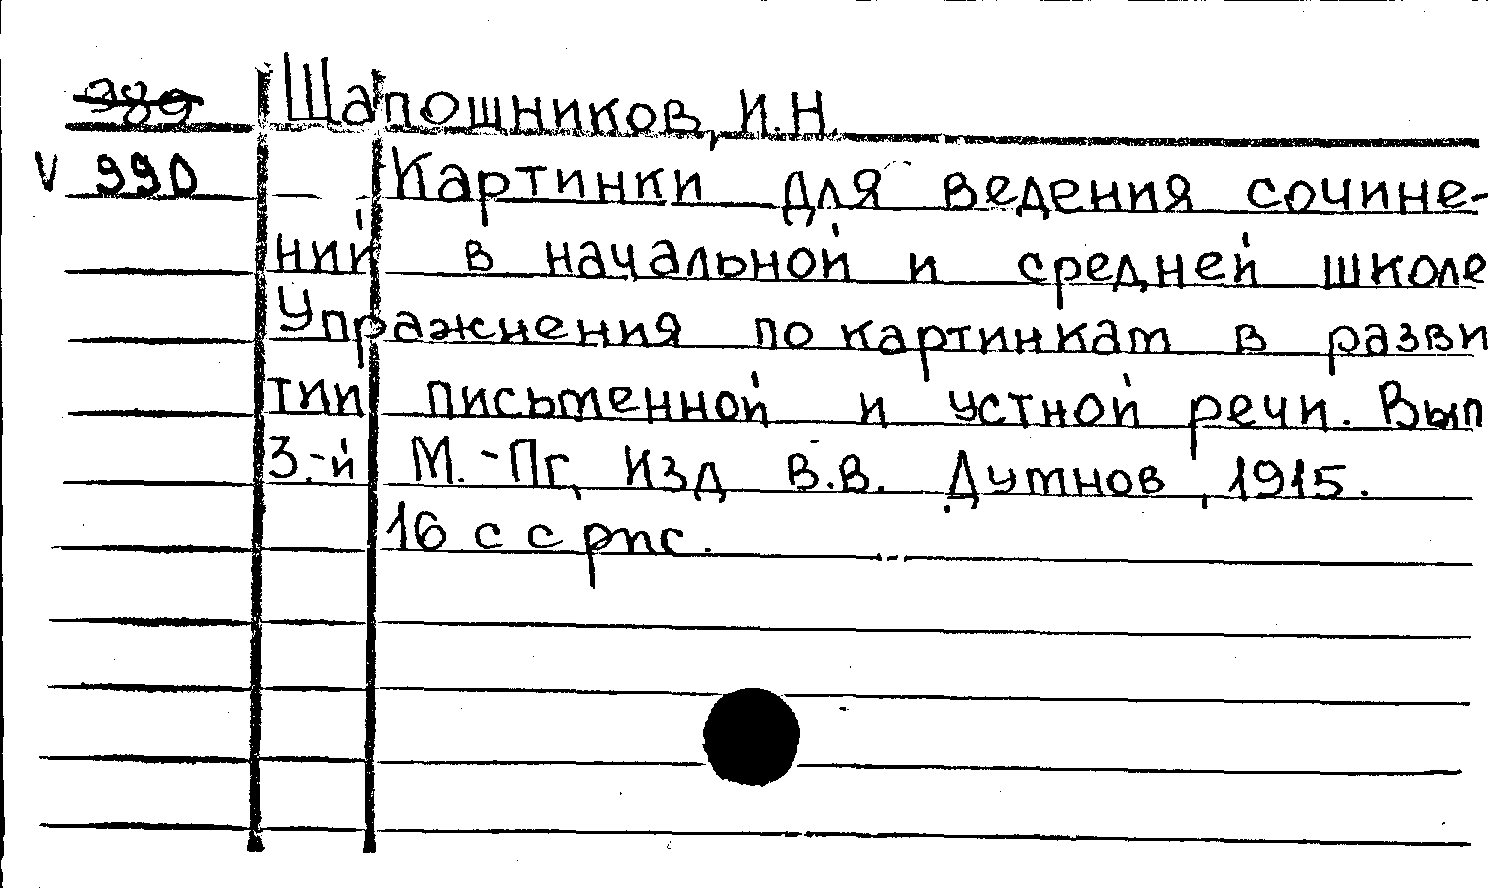 989 Шапошников, И.Н.
V 990 Картинки для ведения сочине-
ний в начальной и средней школе
Упражнения по картинкам в разви
тии письменной и устной речи. Вып
3.-й М.-Пг, Изд В.В. Думнов, 1915.
16 с с рис.